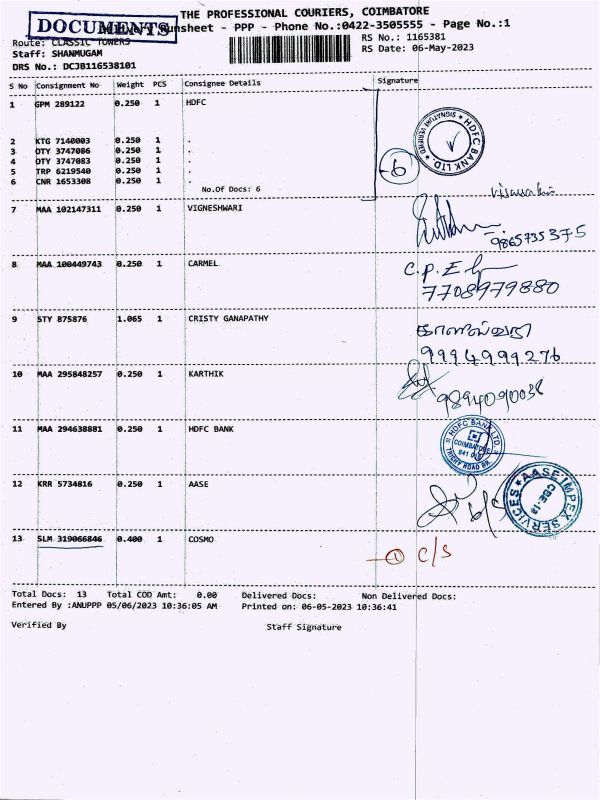 THE PROFESSIONAL COURIERS, COIMBATORE
DOCUMENTS
Runsheet - PPP - Phone No.:0422-3505555 - Page No.:1
Route: CLASSIC TOWERS
RS No.: 1165381
Staff: SHANMUGAM
RS Date: 06-May-2023
DRS No.: DCJB116538101
S No Consignment No Weight PCS Consignee Details Signature
1 GPM 289122 0.250 1 HDFC
HDFC BANK LTD. SIGNATURE VERIFIED
2 KTG 7140003 0.250 1 .
3 OTY 3747086 0.250 1 .
4 OTY 3747083 0.250 1 .
5 TRP 6219540 0.250 1 .
6 CNR 1653308 0.250 1 .
6
No.Of Docs: 6
7 MAA 102147311 0.250 1 VIGNESHWARI
9865735375
8 MAA 100449743 0.250 1 CARMEL
C.P.
7708979880
9 STY 875876 1.065 1 CRISTY GANAPATHY
9994999276
10 MAA 295848257 0.250 1 KARTHIK
9894090038
11 MAA 294638881 0.250 1 HDFC BANK
HDFC BANK LTD. COIMBATORE 641 TRICHY ROAD BR.
12 KRR 5734816 0.250 1 AASE
AASE IMPEX SERVICES CBE-18
13 SLM 319066846 0.400 1 COSMO
1 C/S
Total Docs: 13 Total COD Amt: 0.00 Delivered Docs: Non Delivered Docs:
Entered By :ANUPPP 05/06/2023 10:36:05 AM Printed on: 06-05-2023 10:36:41
Verified By Staff Signature